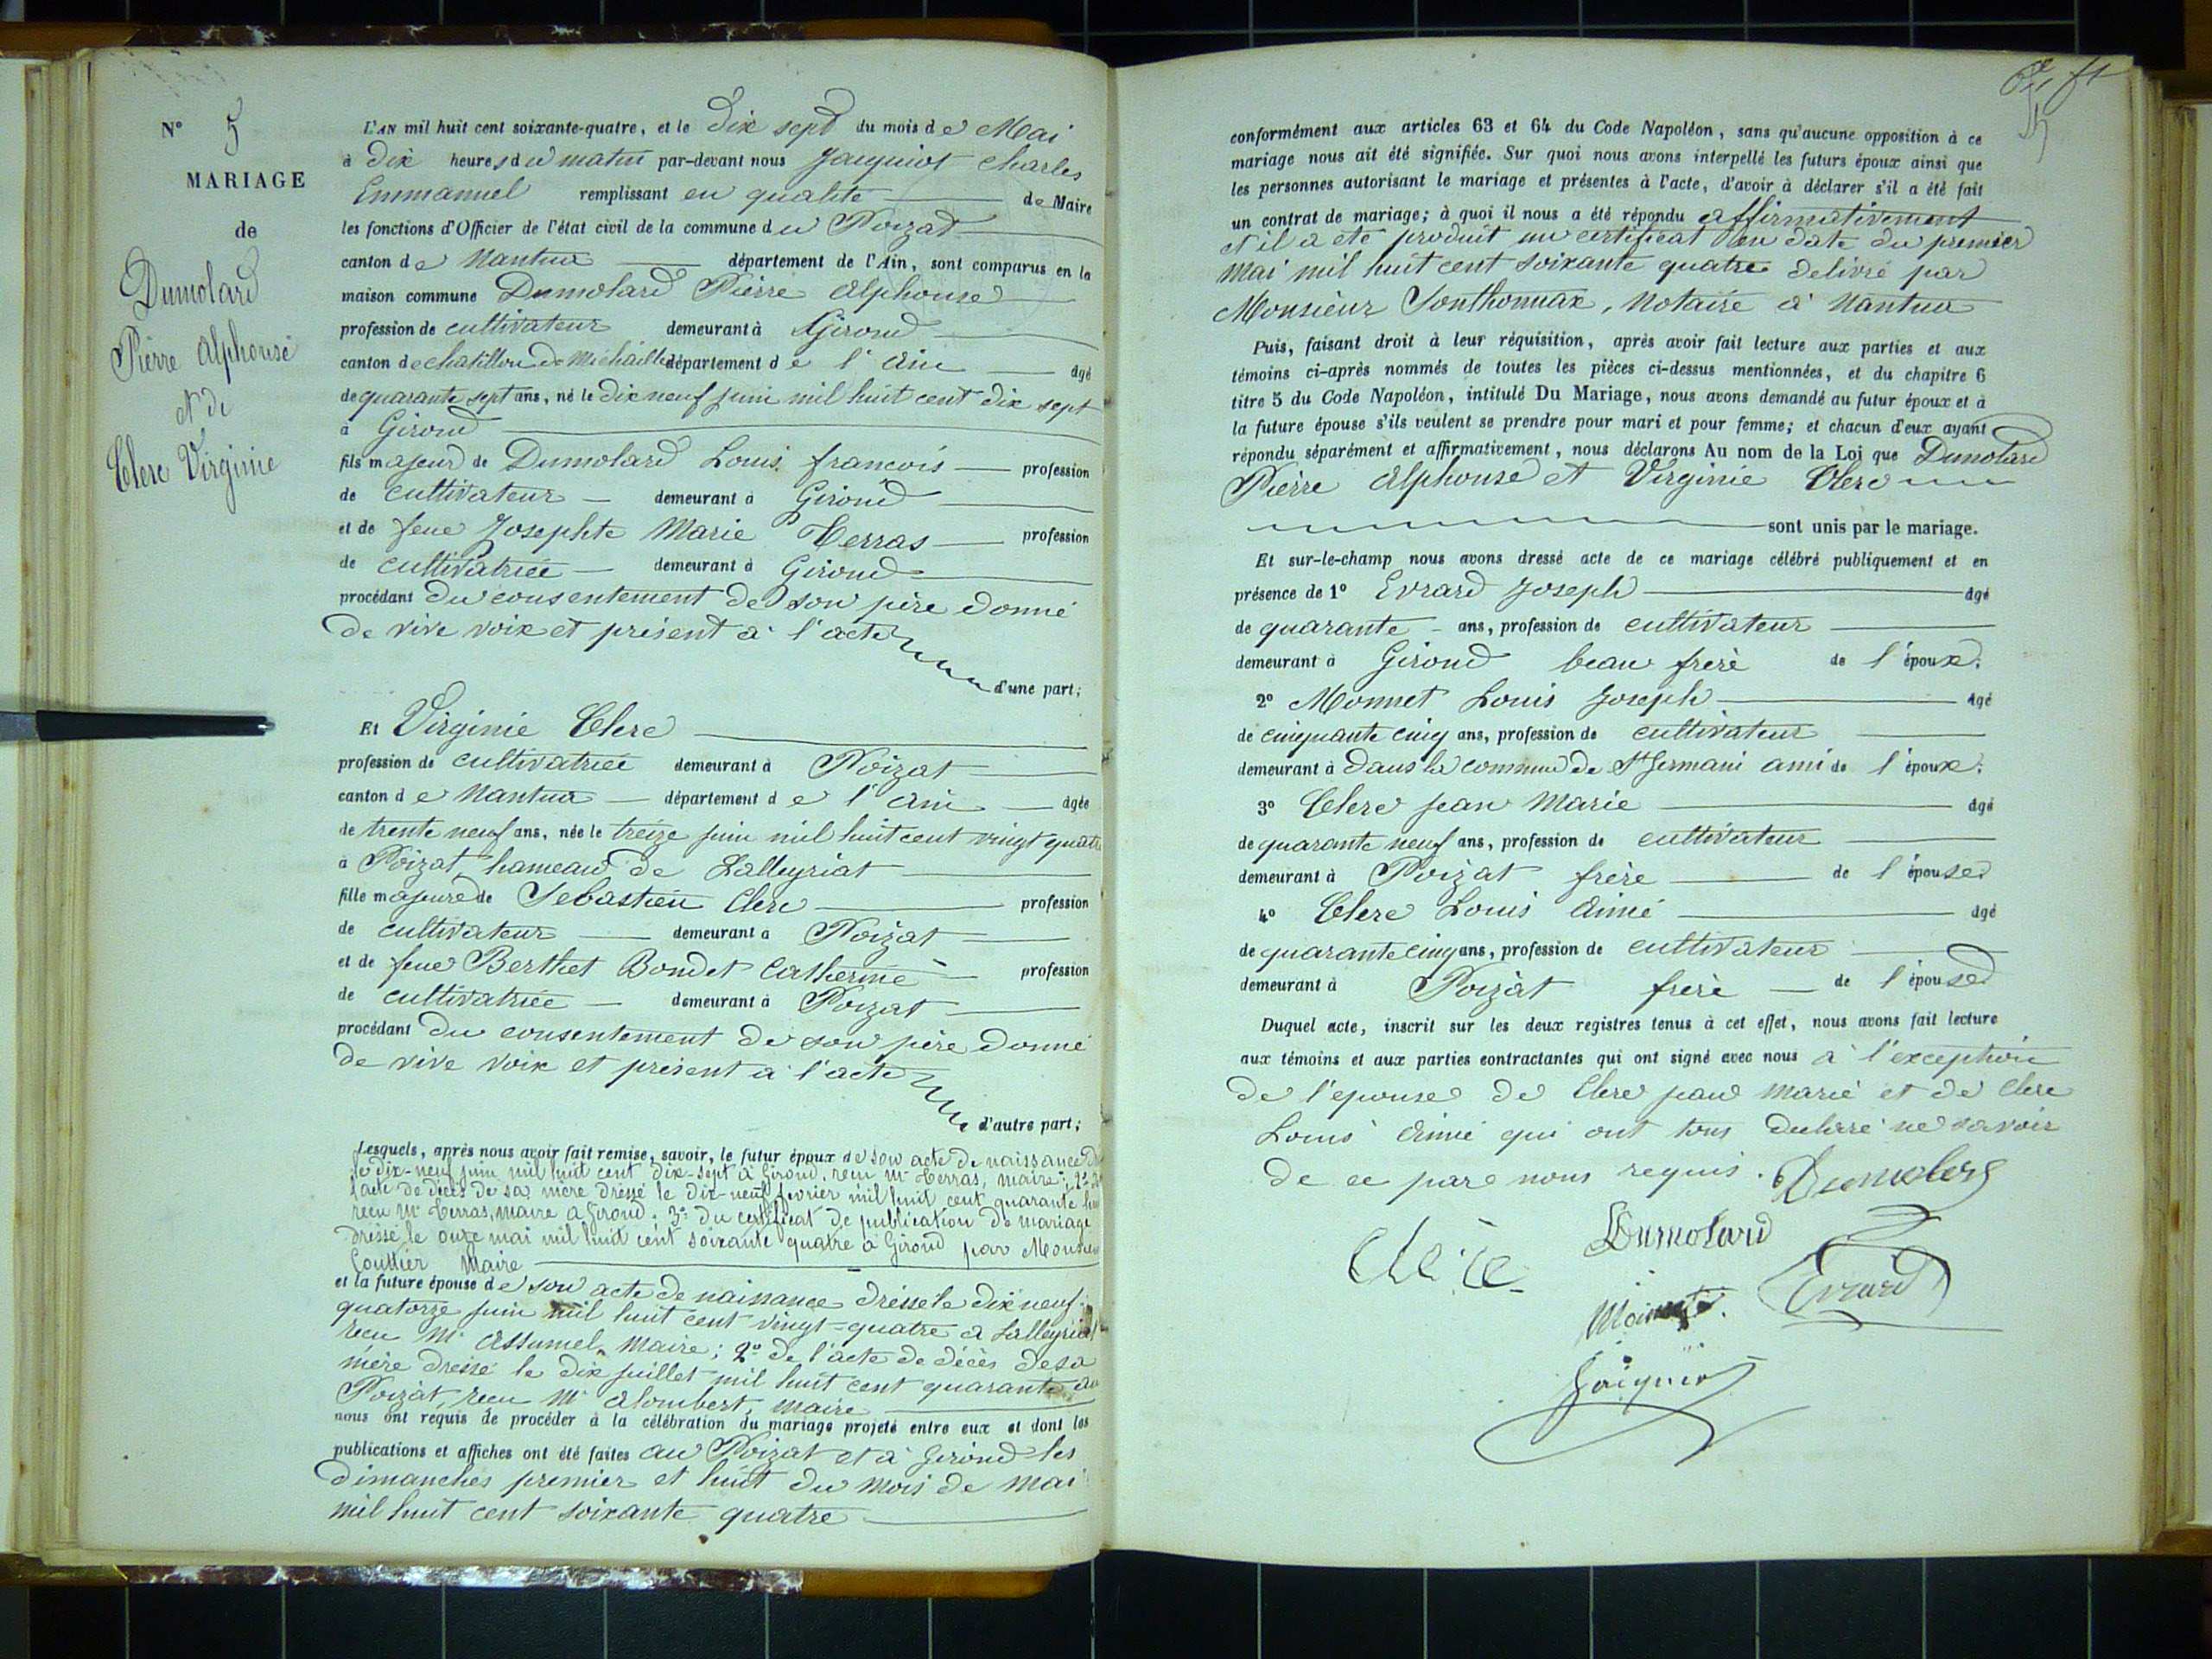 N° 5
MARIAGE
de
Dumolard
Pierre Alphonse
et de
Clerc Virginie
L'AN mil huit cent soixante-quatre, et le Dix sept du mois de Mai
à Dix heures du matin par-devant nous Jacquiot Charles
Emmanuel remplissant en qualité de Maire
les fonctions d'Officier de l'état civil de la commune du Poizat
canton de Nantua département de l'Ain, sont comparus en la
maison commune Dumolard Pierre Alphonse
profession de cultivateur demeurant à Giroud
canton de chatillon de Michaille département de l'Ain âgé
de quarante sept ans, né le dix neuf juin mil huit cent dix sept
à Giroud
fils majeur de Dumolard Louis francois profession
de cultivateur demeurant à Giroud
et de feue Josephte Marie Terras profession
de cultivatrice demeurant à Giroud
procédant du consentement de son père donné
de vive voix et présent à l'acte
d'une part;
Et Virginie Clerc
profession de cultivatrice demeurant à Poizat
canton de Nantua département de l'Ain âgée
de trente neuf ans, née le treize juin mil huit cent vingt quatre
à Poizat, hameau de Lalleyriat
fille majeure de Sebastien Clerc profession
de cultivateur demeurant à Poizat
et de feue Berthet Bondet Catherine profession
de cultivatrice demeurant à Poizat
procédant du consentement de son père donné
de vive voix et présent à l'acte
d'autre part;
Lesquels, après nous avoir fait remise, savoir, le futur époux de son acte de naissance
le dix-neuf juin mil huit cent dix-sept à Giroud, reçu Mr Terras, maire; 2°
l'acte de décès de sa mère dressé le dix-neuf fevrier mil huit cent quarante
reçu Mr Terras, maire à Giroud; 3° du certificat de publication de mariage
dressé le onze mai mil huit cent soixante quatre à Giroud par Monsieur
Couttier Maire
et la future épouse de son acte de naissance dressé le dix neuf
quatorze juin mil huit cent vingt-quatre à Lalleyriat
reçu Mr Assumel, Maire; 2° de l'acte de décès de sa
mère dressé le dix juillet mil huit cent quarante au
Poizat, reçu Mr Alombert, maire
nous ont requis de procéder à la célébration du mariage projeté entre eux et dont les
publications et affiches ont été faites au Poizat et à Giroud les
dimanches premier et huit du mois de mai
mil huit cent soixante quatre
conformément aux articles 63 et 64 du Code Napoléon, sans qu'aucune opposition à ce
mariage nous ait été signifiée. Sur quoi nous avons interpellé les futurs époux ainsi que
les personnes autorisant le mariage et présentes à l'acte, d'avoir à déclarer s'il a été fait
un contrat de mariage; à quoi il nous a été répondu affirmativement
et il a été produit un certificat en date du premier
mai mil huit cent soixante quatre delivré par
Monsieur Sonthonnax, Notaire à Nantua
Puis, faisant droit à leur réquisition, après avoir fait lecture aux parties et aux
témoins ci-après nommés de toutes les pièces ci-dessus mentionnées, et du chapitre 6
titre 5 du Code Napoléon, intitulé Du Mariage, nous avons demandé au futur époux et à
la future épouse s'ils veulent se prendre pour mari et pour femme; et chacun d'eux ayant
répondu séparément et affirmativement, nous déclarons Au nom de la Loi que Dumolard
Pierre Alphonse et Virginie Clerc
sont unis par le mariage.
Et sur-le-champ nous avons dressé acte de ce mariage célébré publiquement et en
présence de 1° Evrard Joseph âgé
de quarante ans, profession de cultivateur
demeurant à Giroud beau frère de l'époux.
2° Monnet Louis Joseph âgé
de cinquante cinq ans, profession de cultivateur
demeurant à dans la commune de St Germain ami de l'époux.
3° Clerc Jean Marie âgé
de quarante neuf ans, profession de cultivateur
demeurant à Poizat frère de l'épouse
4° Clerc Louis Aimé âgé
de quarante cinq ans, profession de cultivateur
demeurant à Poizat frère de l'épouse
Duquel acte, inscrit sur les deux registres tenus à cet effet, nous avons fait lecture
aux témoins et aux parties contractantes qui ont signé avec nous à l'exception
de l'epouse de Clerc jean Marie et de Clerc
Louis Aimé qui ont tous declaré ne savoir
de ce par nous requis. Dumolard
Dumolard
Clerc
Evrard
Monnet
Jacquiot